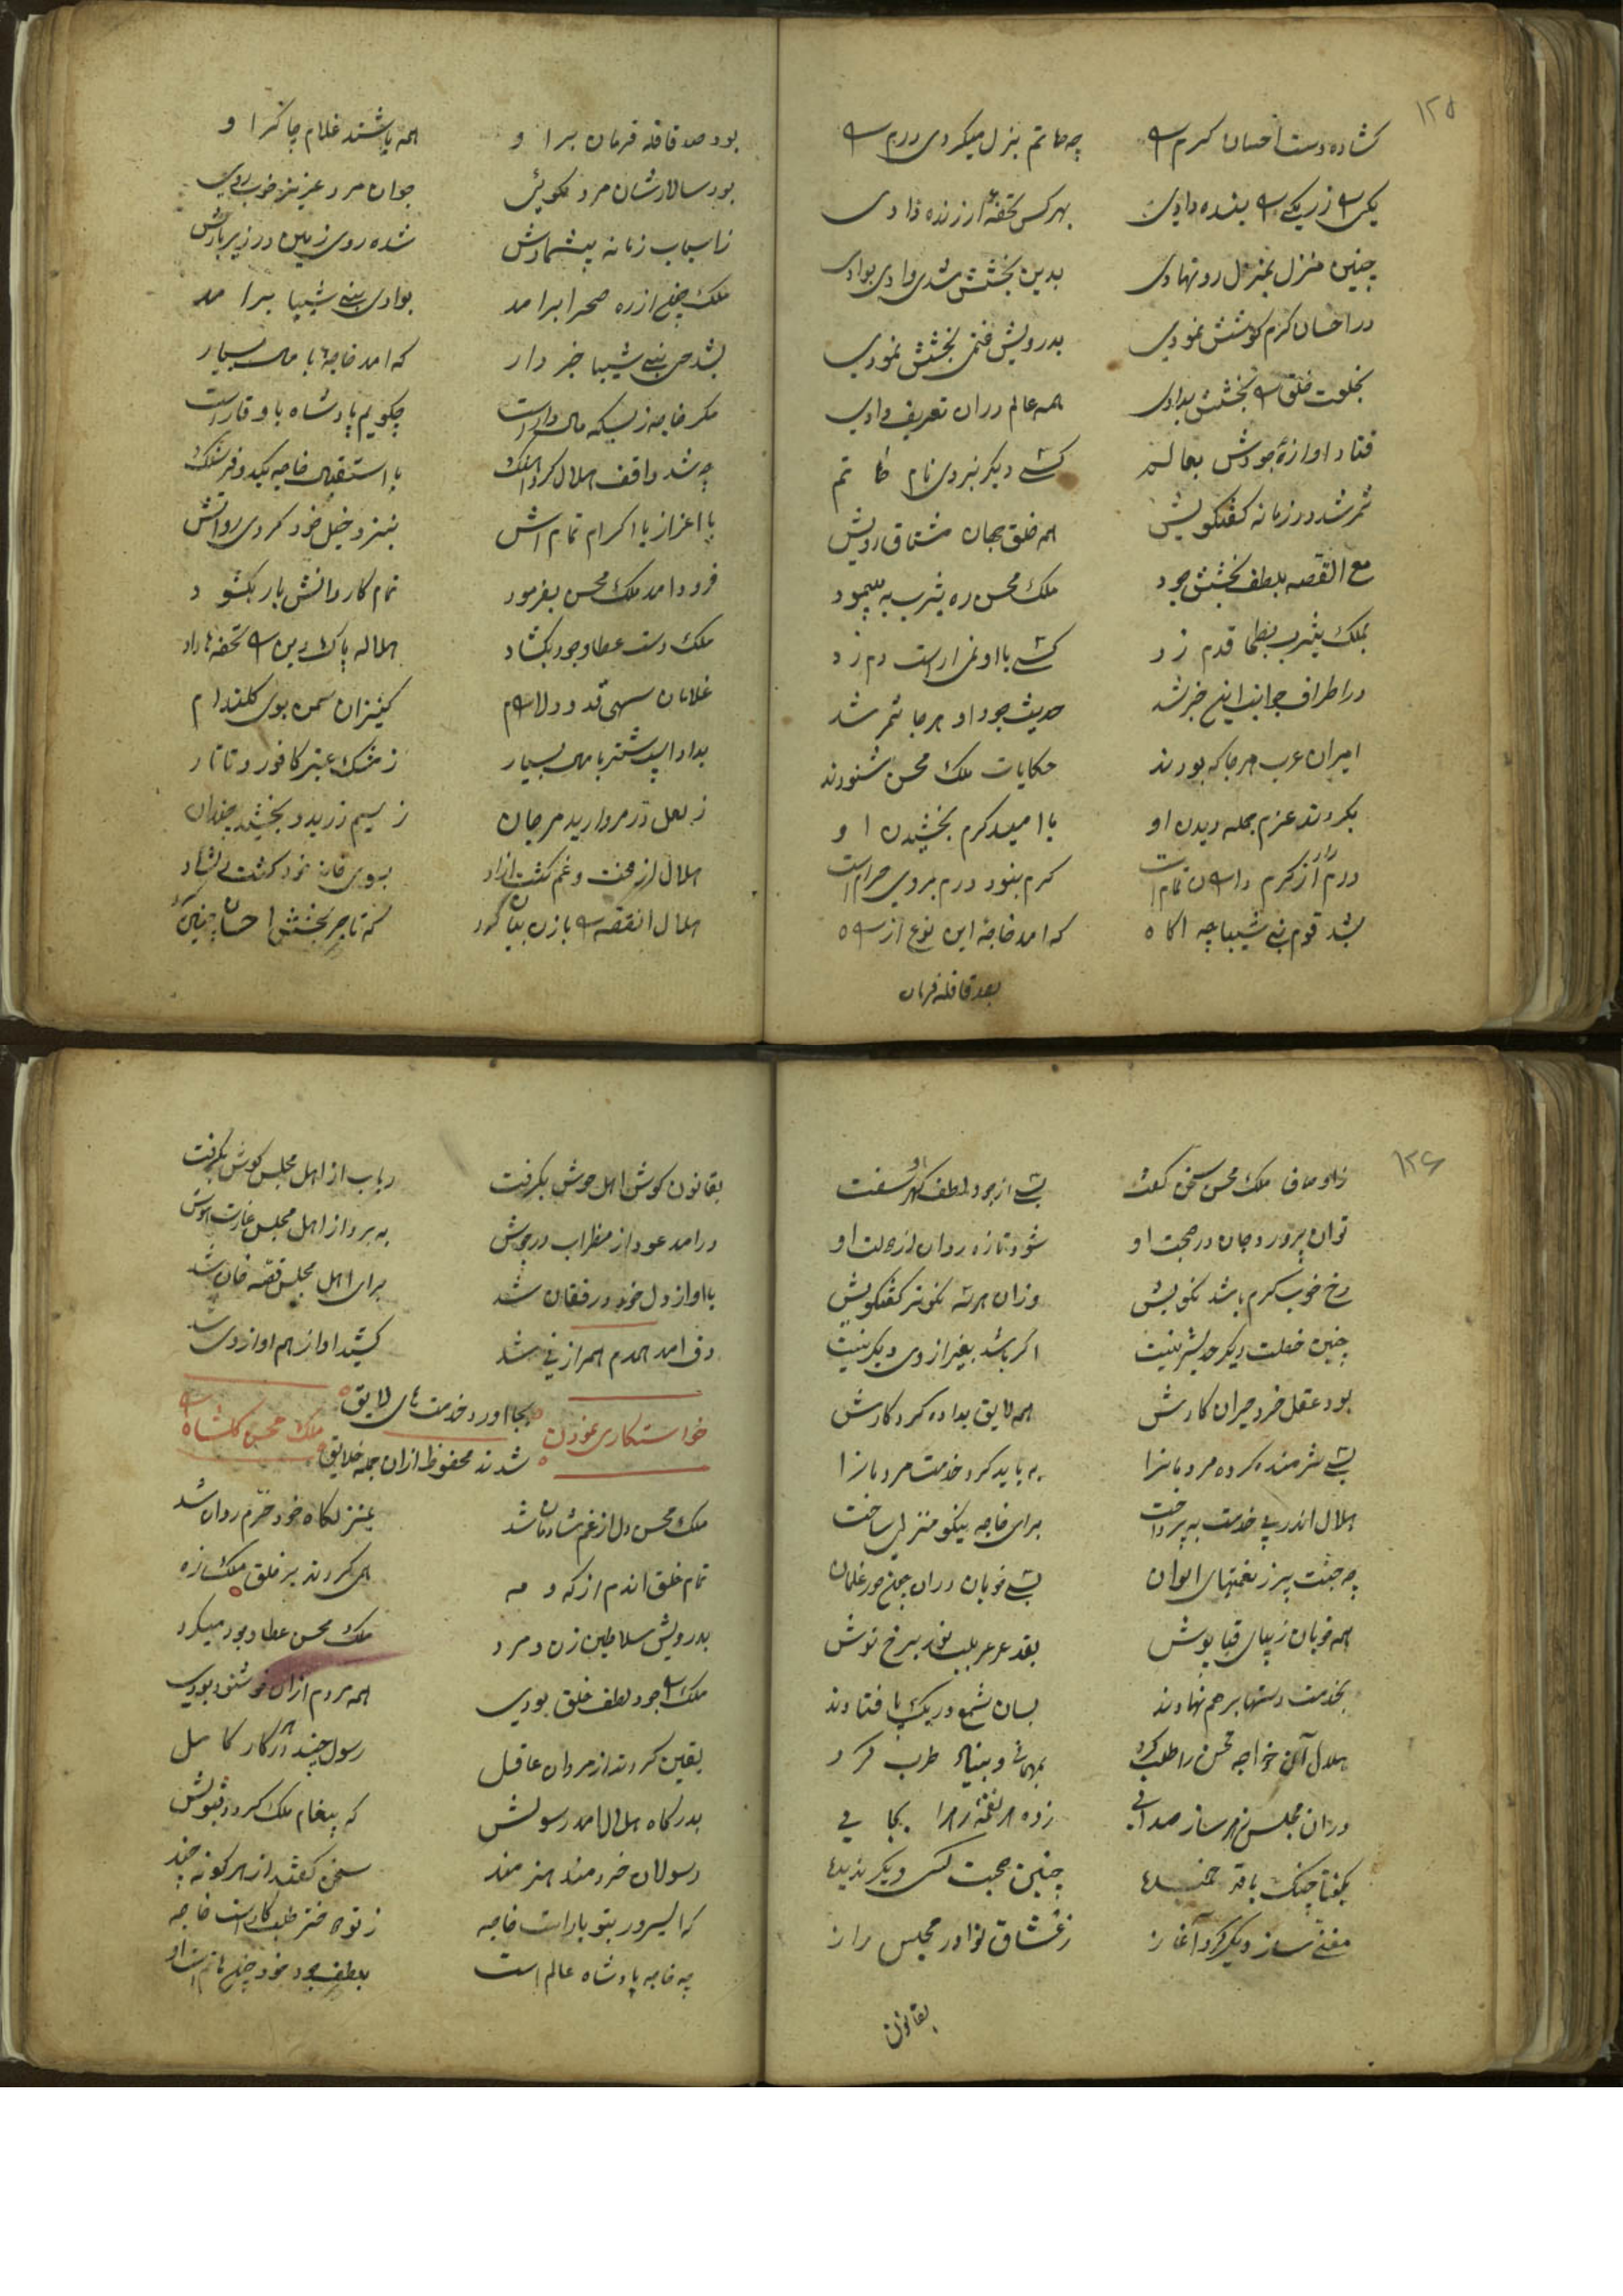 ۱۲۵
کشاده دست احسان کرم را چه حاتم بزل میکردی درم را
یکی را زر یکی را بنده دادی بهر کس تحفهٔ ارزنده دادی
چنین منزل بمنزل رو نهادی بدین بخشش شدی وادی بوادی
در احسان کرم کوشش نمودی بدرویش بخشش نمودی
بخلعت خلق را بخشش بدادی همه عالم دران تعریف دادی
فتاد اوازهٔ جودش بعالم کسی دیکر نبردی نام حاتم
ثمر شد در زمانه کفتکویش همه خلق جهان مشتاق رویش
مع القصه بلطف بخشش جود ملک محسن ره یثرب به پیمود
بملک یثرب بطحا قدم زد کسی با او نمی‌ارست دم زد
در اطراف جوانب اینخبر شد حدیث جود او هر جا ثمر شد
امیران عرب هر جا که بودند حکایات ملک محسن شنودند
بکردند عزم جمله دیدن او با امید کرم بخشیدن او
درم را از کرم دادن تمام است کرم نبود درم بروی حرام است
بشد قوم بنی شیبا چه اکاه که امد خاجهٔ این نوع از راه
بصد قافله فرمان
بود صد قافله فرمان برا و همه باشند غلام چاکرا و
بود سالارشان مرد نکویی جوان مرد عزیز خوب رویی
ز اسباب زمانه بیشمارش شده روی زمین در زیر بارش
ملک چنین از ره صحرا برامد بوادی بنی شیبا برامد
بشد حی بنی شیبا خبر دار که امد خاجهٔ با مال بسیار
مکر خاجه ز بسکه مال دار است چکویم پادشاه با وقار است
چه شد واقف هلال کرد اهنک با استقبال خاجه یکدو فرسنک
با اعزاز با اکرام تمامش بنزد خیل خود کردی روانش
فرود امد ملک محسن بفرمود تمام کاروانش بار بکشود
ملک دست عطا وجود بکشاد هلال پاک دین را تحفه‌ها داد
غلامان سهی قد و دلارام کنیزان سمن بوی کلندام
بداد اسپ شتر با مال بسیار ز مشک عنبر کافور و تاتار
ز لعل در مروارید مرجان ز سیم زر بدو بخشید چندان
هلال از محنت و غم کشت ازاد بسوی خانه خود کشت دلشاد
هلال انقصه را با زن بیان کرد که تاجر بخشش احسان چنین کرد
۱۲۶
ز اوصاف ملک محسن سخن کفت بسی از جود لطف او کهر سفت
توان پرورد جان در صحبت او شود تازه روان از دولت او
رخ خوب کرم باشد نکویش وزان هر سه نکوتر کفتکویش
چنین خصلت دیکر حد بشر نیست اکر باشد بغیر از وی دیکر نیست
بود عقل خرد حیران کارش همه لایق بداده کردکارش
بسی شرمنده کرده مرد مانرا بباید کرد خدمت مرد مانرا
هلال اندر پی خدمت به پرداخت برای خاجه نیکو منزلی ساخت
چه جنت پر ز نعمتهای الوان بسی خوبان دران چون حور غلمان
همه خوبان زیبای قبا پوش بقد عرعر بلب برخ نوش
بخدمت دستها بر هم نهادند بسان شمع در یک پا فتادند
هلال آن خواجه محسن را طلب کرد بمهمانی و بنیاد طرب کرد
دران مجلس ز هر ساز صدایی زده هر نغمه را بجایی
بکفتا چنک با قد خمیده چنین صحبت کسی دیکر ندیده
مغنی ساز دیکر کرد آغاز ز عشاق نوا در مجلس راز
بقانون
بقانون کوش اهل هوش بکرفت رباب از اهل مجلس کوش بکرفت
درامد عود از مظراب در جوش به برد از اهل مجلس غارت هوش
با اواز دل خود در فغان شد برای اهل مجلس قصه خان شد
دف امد همدم همراز نی شد کشید اواز هم اواز وی شد
بجا اورد خدمت های لایق
خواستکاری نمودن ملک محسن کلشاه را
شدند محفوظ ازان جمله خلایق
ملک محسن دل از غم شادمان شد بمنزلکاه خود خرم روان شد
تمام خلق اندم از که و مه همی کردند بر خلق ملک زه
بدرویش سلاطین زن و مرد ملک محسن عطا وجود میکرد
ملک را جود لطف خلق بودی همه مردم ازان خوشنود بودی
یقین کردند از مردان عاقل رسول چند در کار کامل
بدرکاه هلال امد رسولش که پیغام ملک کرد قبولش
رسولان خردمند هنرمند سخن کفتند از هر کونهٔ چند
که ایسرور بتو یار است خاجه ز تو دختر طلبکار است خاجه
چه خاجه پادشاه عالم است بلطف جود خود حاتم است او